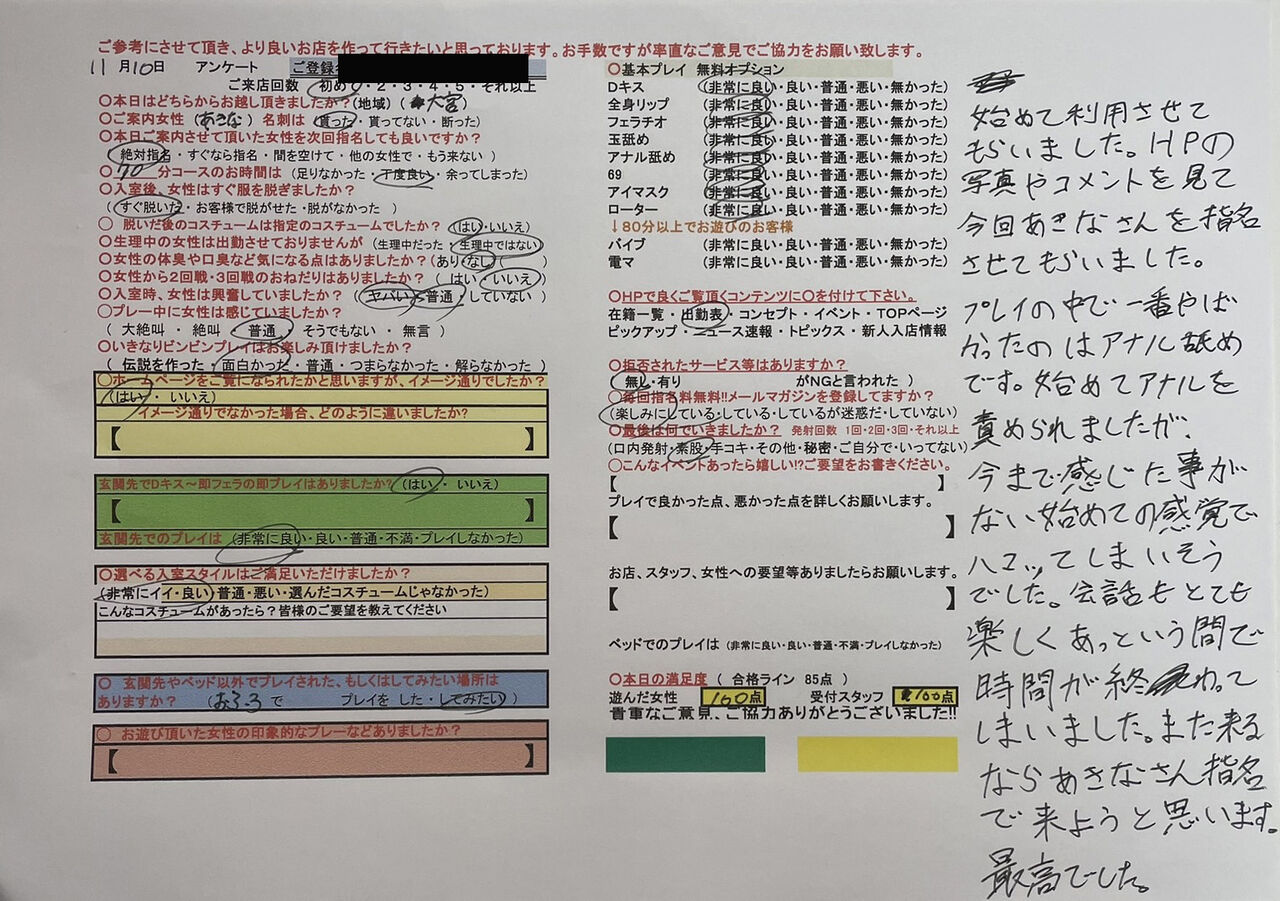 ご参考にさせて頂き、より良いお店を作って行きたいと思っております。お手数ですが率直なご意見でご協力をお願い致します。
11月10日 アンケート ご登録
ご来店回数 初めて・2・3・4・5・それ以上
○本日はどちらからお越し頂きましたか?(地域)(大宮)
○ご案内女性(あきな)名刺は(貰った・貰ってない・断った)
○本日ご案内させて頂いた女性を次回指名しても良いですか?
(絶対指名・すぐなら指名・間を空けて・他の女性で・もう来ない )
○70分コースのお時間は(足りなかった・丁度良い・余ってしまった)
○入室後、女性はすぐ服を脱ぎましたか?
(すぐ脱いだ・お客様で脱がせた・脱がなかった )
○ 脱いだ後のコスチュームは指定のコスチュームでしたか?(はい・いいえ)
○生理中の女性は出勤させておりませんが(生理中だった・生理中ではない)
○女性の体臭や口臭など気になる点はありましたか?(あり・なし( )
○女性から2回戦・3回戦のおねだりはありましたか?( はい・いいえ )
○入室時、女性は興奮していましたか?(ヤバい・普通・していない )
○プレー中に女性は感じていましたか?
( 大絶叫・絶叫・普通・そうでもない・無言 )
○いきなりビンビンプレイはお楽しみ頂けましたか?
(伝説を作った・面白かった・普通・つまらなかった・解らなかった)
○ホームページをご覧になられたかと思いますが、イメージ通りでしたか?
(はい・いいえ)
イメージ通りでなかった場合、どのように違いましたか?
【 】
玄関先でDキス~即フェラの即プレイはありましたか?(はい・いいえ)
【 】
玄関先でのプレイは(非常に良い・良い・普通・不満・プレイしなかった)
○選べる入室スタイルはご満足いただけましたか?
(非常にイイ・良い・普通・悪い・選んだコスチュームじゃなかった)
こんなコスチュームがあったら?皆様のご要望を教えてください
○ 玄関先やベッド以外でプレイされた、もしくはしてみたい場所は
ありますか?(おふろ)で プレイを した・してみたい )
○ お遊び頂いた女性の印象的なプレーなどありましたか?
【 】
○基本プレイ 無料オプション
Dキス (非常に良い・良い・普通・悪い・無かった)
全身リップ (非常に良い・良い・普通・悪い・無かった)
フェラチオ (非常に良い・良い・普通・悪い・無かった)
玉舐め (非常に良い・良い・普通・悪い・無かった)
アナル舐め (非常に良い・良い・普通・悪い・無かった)
69 (非常に良い・良い・普通・悪い・無かった)
アイマスク (非常に良い・良い・普通・悪い・無かった)
ローター (非常に良い・良い・普通・悪い・無かった)
↓80分以上でお遊びのお客様
バイブ (非常に良い・良い・普通・悪い・無かった)
電マ (非常に良い・良い・普通・悪い・無かった)
○HPで良くご覧頂くコンテンツに○を付けて下さい。
在籍一覧・出勤表・コンセプト・イベント・TOPページ
ピックアップ・ニュース速報・トピックス・新人入店情報
○拒否されたサービス等はありますか?
(無し・有り がNGと言われた )
○毎回指名料無料!!メールマガジンを登録してますか?
(楽しみにしている・している・しているが迷惑だ・していない)
○最後は何でいきましたか? 発射回数 1回・2回・3回・それ以上
(口内発射・素股・手コキ・その他・秘密・ご自分で・いってない)
○こんなイベントあったら嬉しい!?ご要望をお書きください。
【 】
プレイで良かった点、悪かった点を詳しくお願いします。
【 】
お店、スタッフ、女性への要望等ありましたらお願いします。
【 】
ベッドでのプレイは (非常に良い・良い・普通・不満・プレイしなかった)
○本日の満足度 ( 合格ライン 85点 )
遊んだ女性 100点 受付スタッフ 100点
貴重なご意見、ご協力ありがとうございました!!
始めて利用させて
もらいました。HPの
写真やコメントを見て
今回あきなさんを指名
させてもらいました。
プレイの中で一番やば
かったのはアナル舐め
です。始めてアナルを
責められましたが、
今まで感じた事が
ない始めての感覚で
ハマってしまいそう
でした。会話もとても
楽しくあっという間で
時間が終わって
しまいました。また来る
ならあきなさん指名
で来ようと思います。
最高でした。